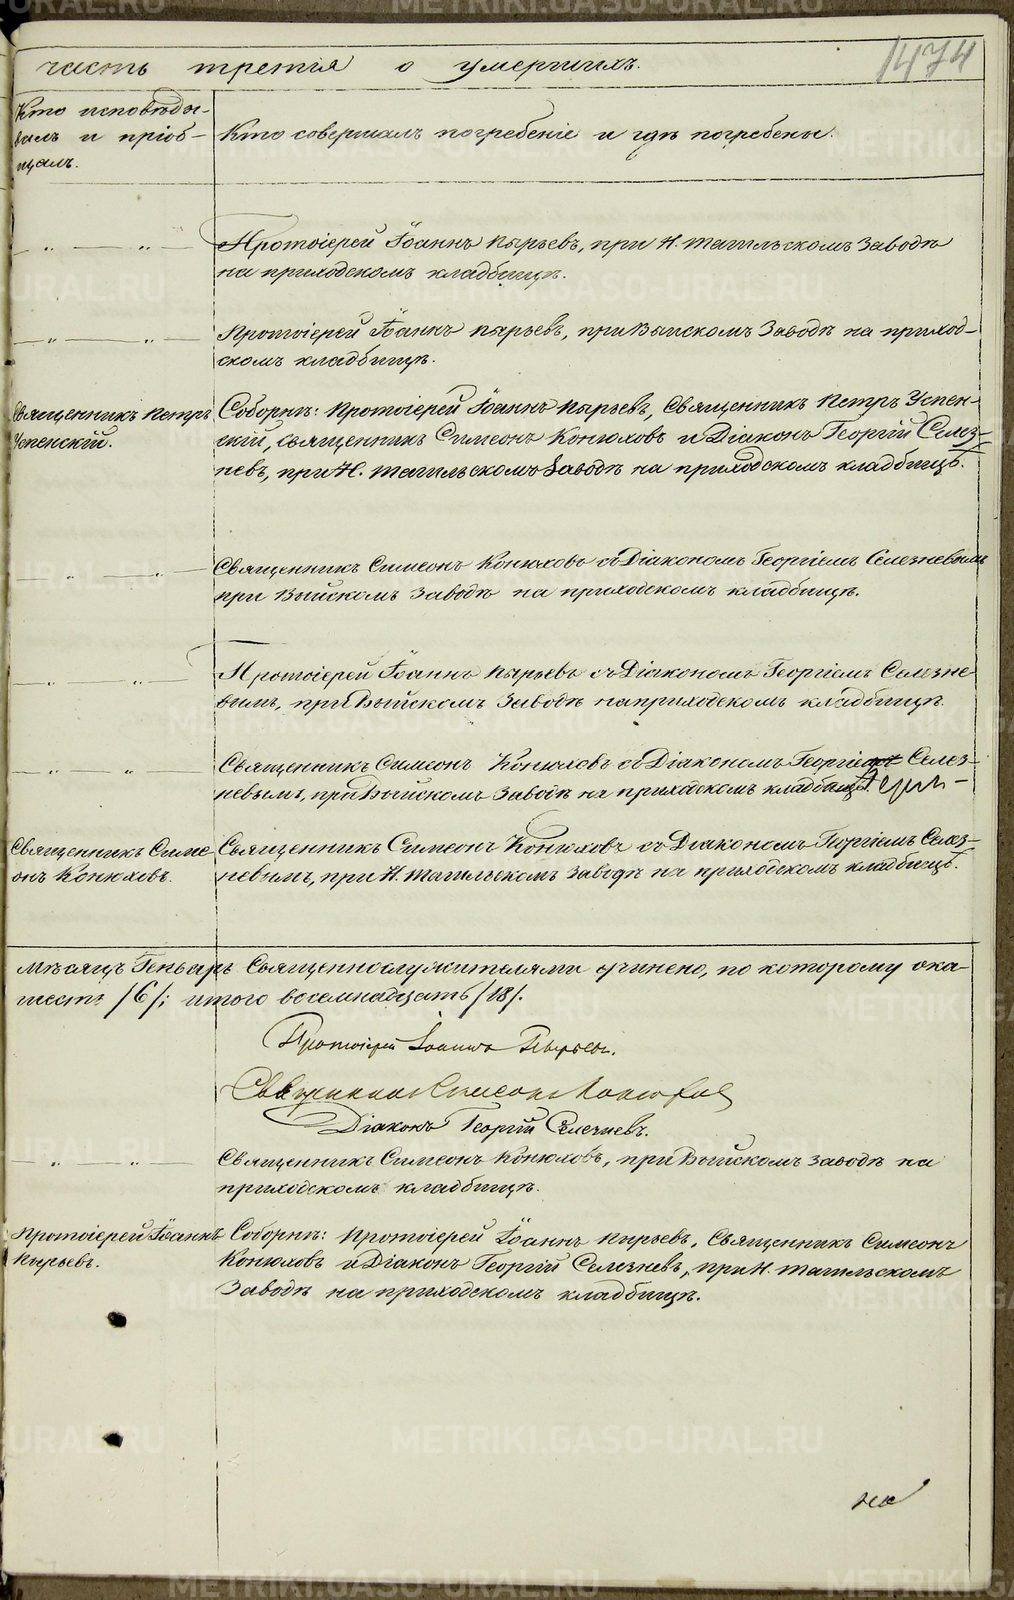 1474
часть третія о умершихъ.
Кто исповѣды-
валъ и пріоб-
щалъ.
Кто совершалъ погребеніе и гдѣ погребены.
— „ — „ — Протоіерей Іоаннъ Пырьевъ, при Н. Тагильскомъ Заводѣ
на приходскомъ кладбищѣ.
— „ — „ — Протоіерей Іоаннъ Пырьевъ, при Выйскомъ Заводѣ на приход-
скомъ кладбищѣ.
Священникъ Петръ
Успенскій.
Соборнѣ: Протоіерей Іоаннъ Пырьевъ, Священникъ Петръ Успен-
скій, Священникъ Симеонъ Конюховъ и Діаконъ Георгій Селез-
невъ, при Н. Тагильскомъ Заводѣ на приходскомъ кладбищѣ.
— „ — „ — Священникъ Симеонъ Конюховъ съ Діакономъ Георгіемъ Селезневымъ
при Выйскомъ Заводѣ на приходскомъ кладбищѣ.
— „ — „ — Протоіерей Іоаннъ Пырьевъ съ Діакономъ Георгіемъ Селезне
вымъ, при Выйскомъ Заводѣ на приходскомъ кладбищѣ.
— „ — „ — Священникъ Симеонъ Конюховъ съ Діакономъ Селез-
невымъ, при Выйскомъ Заводѣ на приходскомъ кладбищѣ.
Священникъ Симе
онъ Конюховъ.
Священникъ Симеонъ Конюховъ съ Діакономъ Георгіемъ Селез-
невымъ, при Н. Тагильскомъ Заводѣ на приходскомъ кладбищѣ.
мѣсяцъ Генварь Священнослужителями учинено, по которому ока-
шесть /6/; итого восемнадцать /18/.
Протоіерей Іоаннъ Пырьевъ.
Священникъ Симеонъ Конюховъ
Діаконъ Георгій Селезневъ.
— „ — „ — Священникъ Симеонъ Конюховъ, при Выйскомъ Заводѣ на
приходскомъ кладбищѣ.
Протоіерей Іоаннъ
Пырьевъ.
Соборнѣ: Протоіерей Іоаннъ Пырьевъ, Священникъ Симеонъ
Конюховъ и Діаконъ Георгій Селезневъ, при Н. Тагильскомъ
Заводѣ на приходскомъ кладбищѣ.
на
METRIKI.GASO-URAL.RU